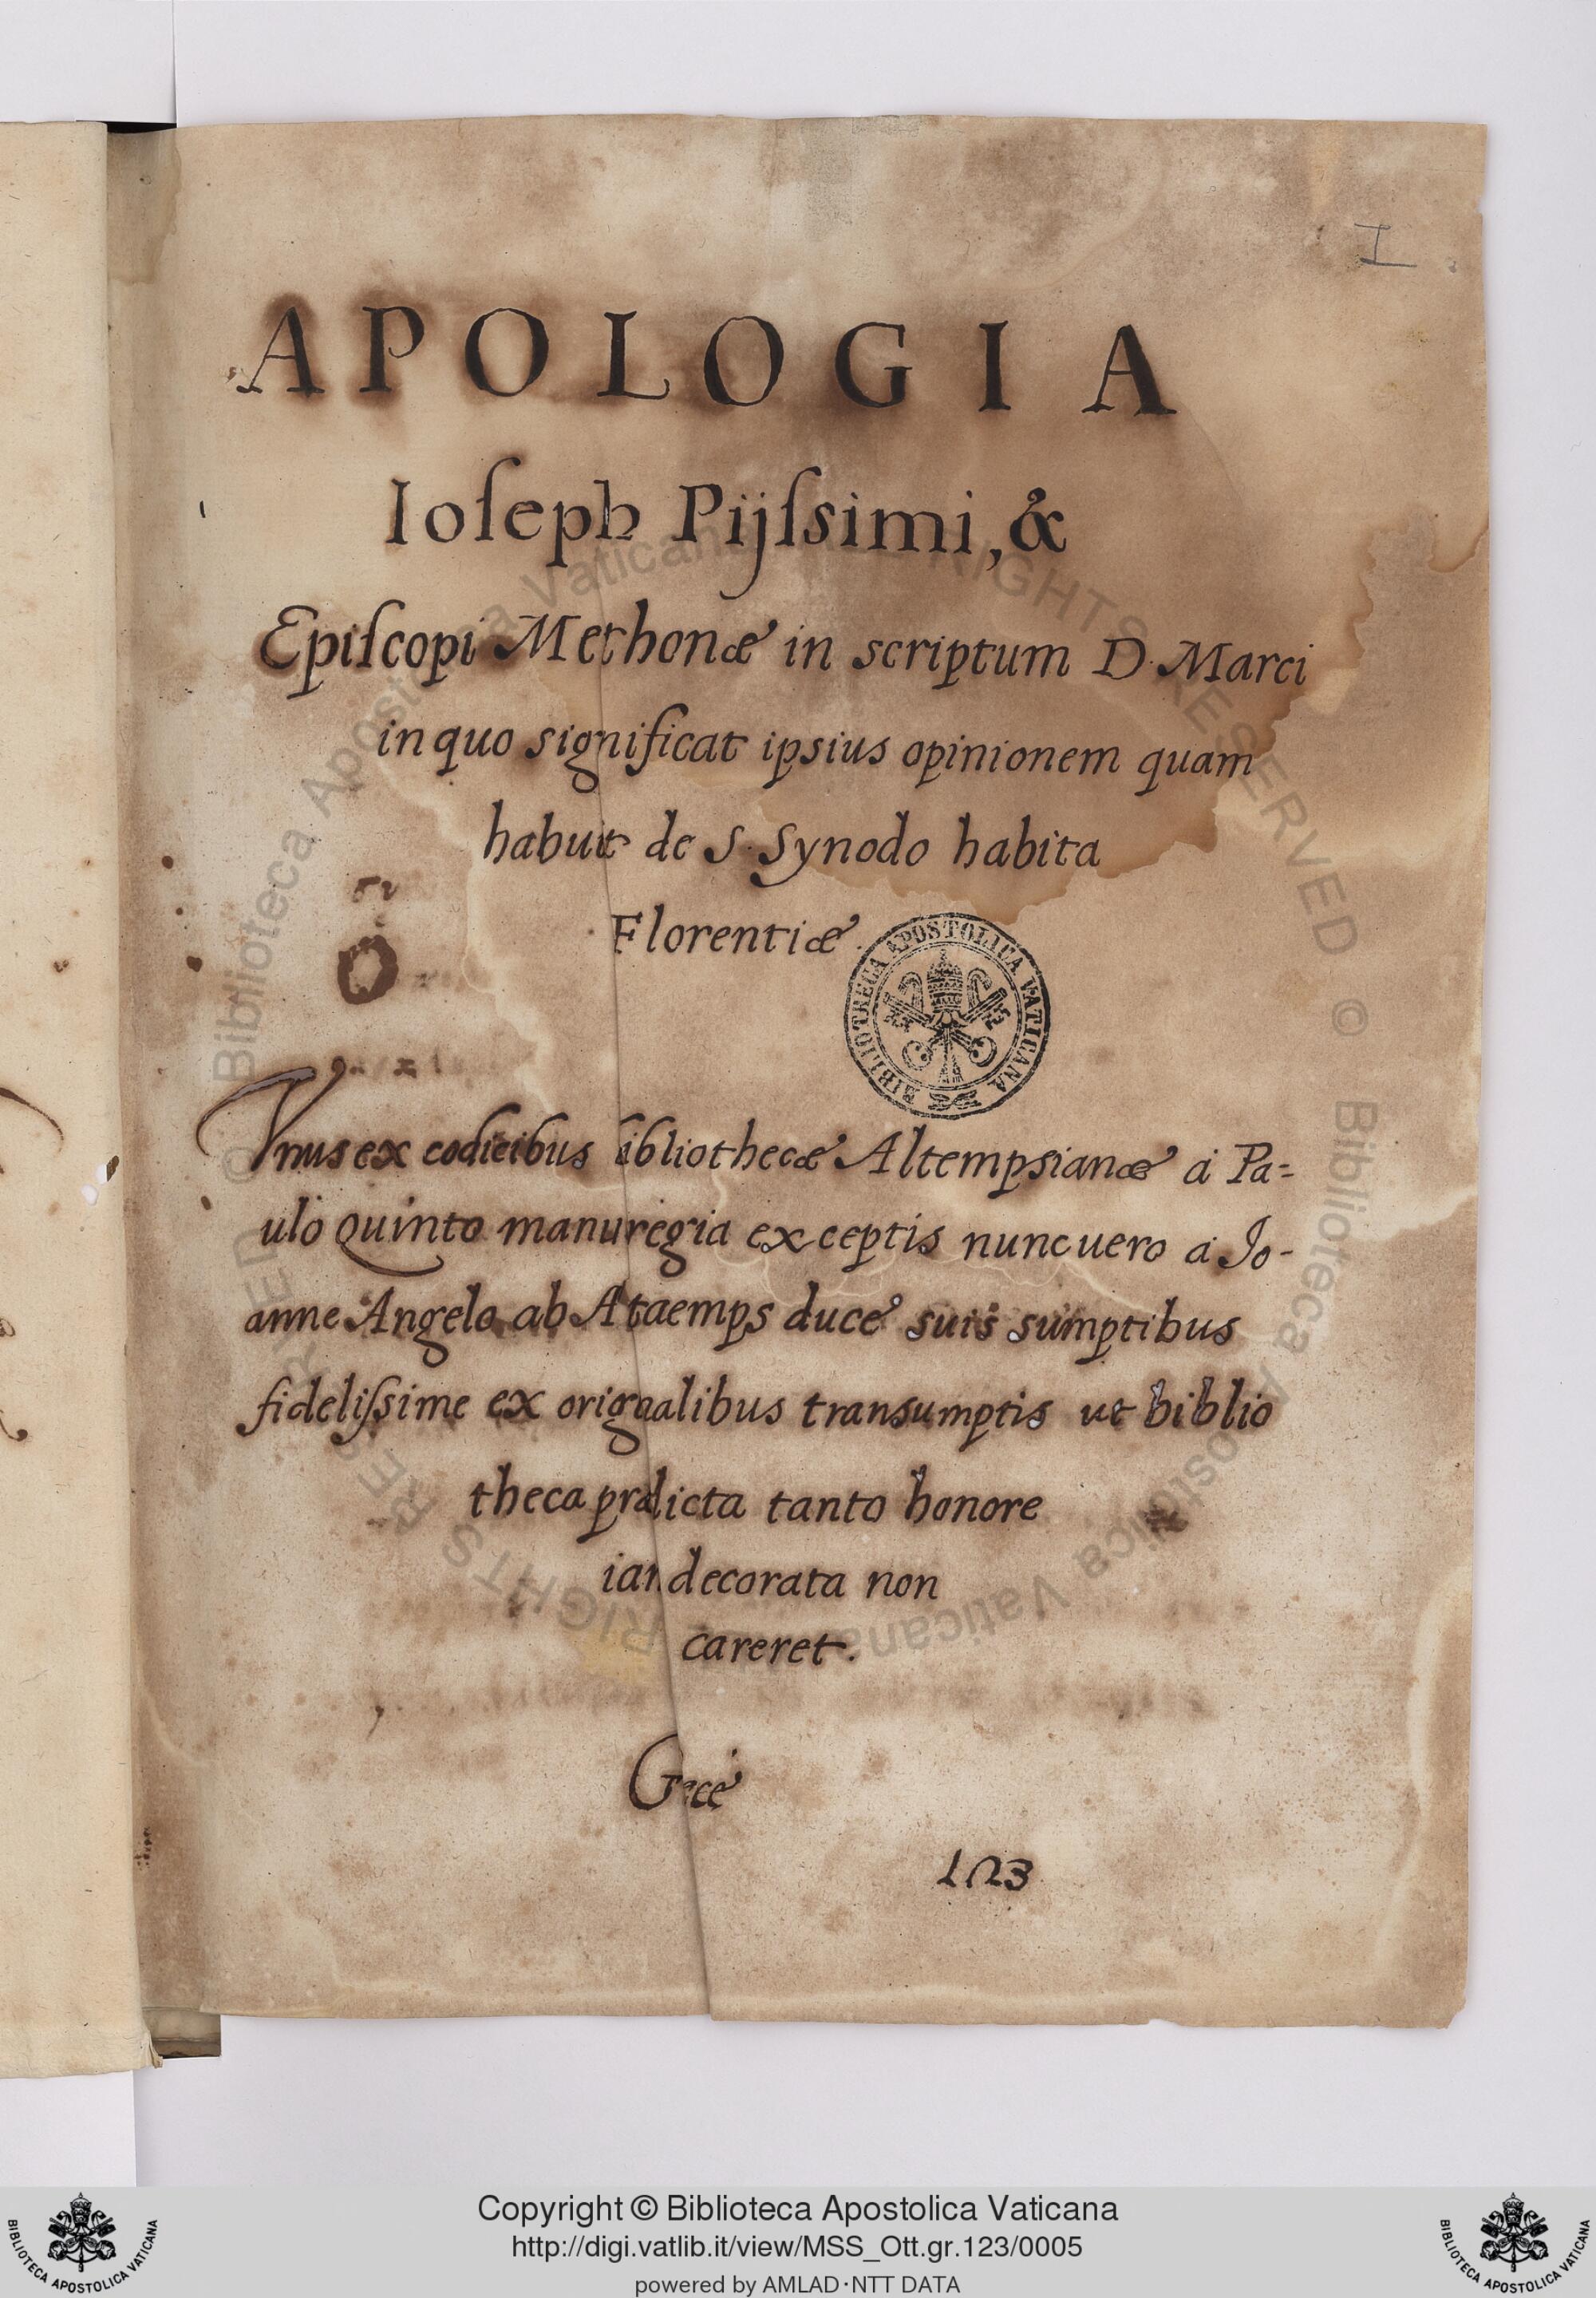 I
APOLOGIA
Ioſeph Pijſsimi, &
Epiſcopi Methonæ in scriptum D. Marci
in quo significat ipsius opinionem quam
habuit de S. Synodo habita
Florentiæ.
BIBLIOTHECA APOSTOLICA VATICANA
Vnus ex codicibus bibliothecæ Altempsianæ a Pa=
ulo Quinto manu regia exceptis nunc uero a Jo-
anne Angelo ab Ataemps duce suis sumptibus
fideliſsime ex origalibus transumptis ut biblio
theca prdicta tanto honore
iandecorata non
careret.
Grecè
123
Copyright © Biblioteca Apostolica Vaticana
http://digi.vatlib.it/view/MSS_Ott.gr.123/0005
powered by AMLAD·NTT DATA